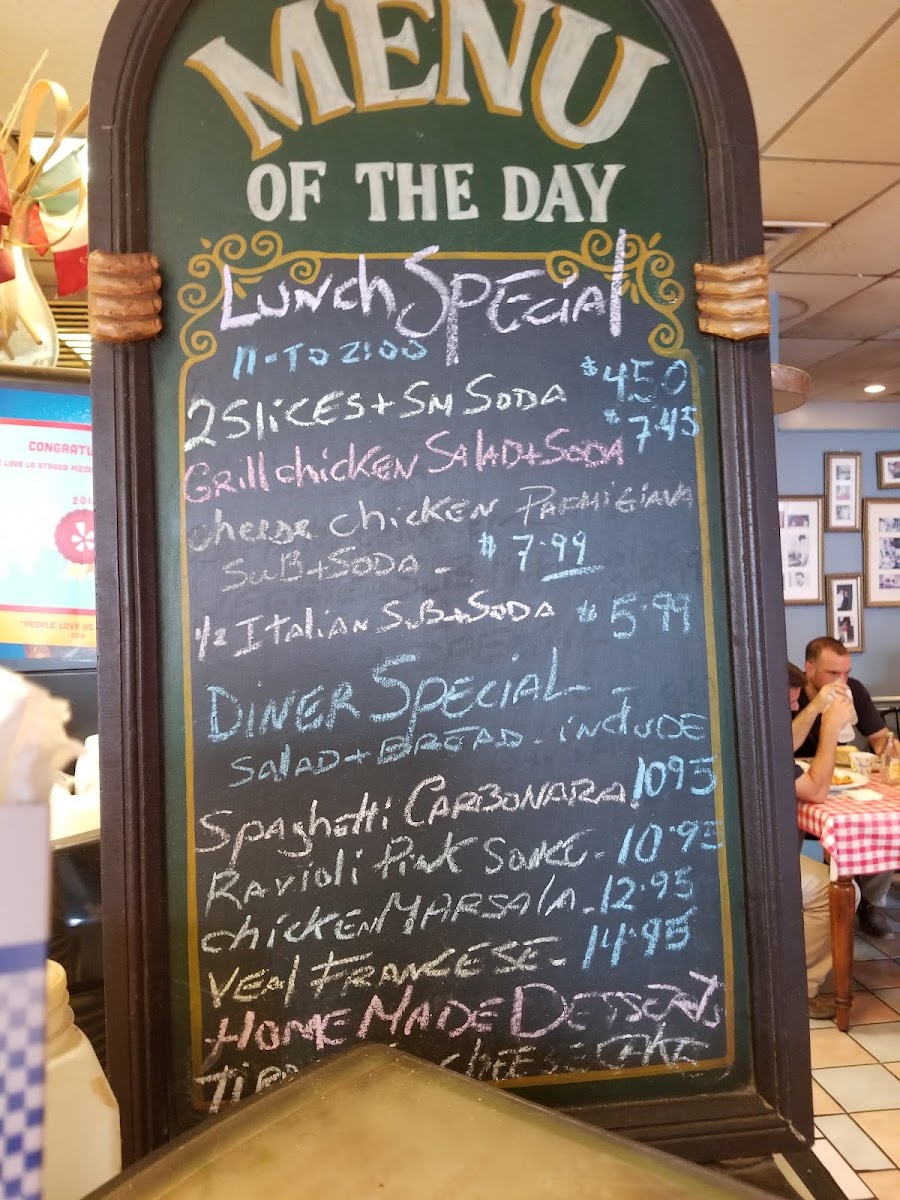 MENU
OF THE DAY
Lunch Special
11-TO 2:00
2 Slices + Sm Soda $4.50
Grill chicken Salad + Soda $7.45
cheese chicken Parmigiana
Sub + Soda - $7.99
1/2 Italian Sub + Soda $5.99
Diner Special -
Salad + Bread - include
Spaghetti Carbonara 1095
Ravioli Pink Souce - 10.95
chicken Marsala - 12.95
Veal Francese - 14.95
Home Made Desserts
cheese cake
CONGRATU
LOVE LA STRADA PIZZE
201
"PEOPLE LOVE US